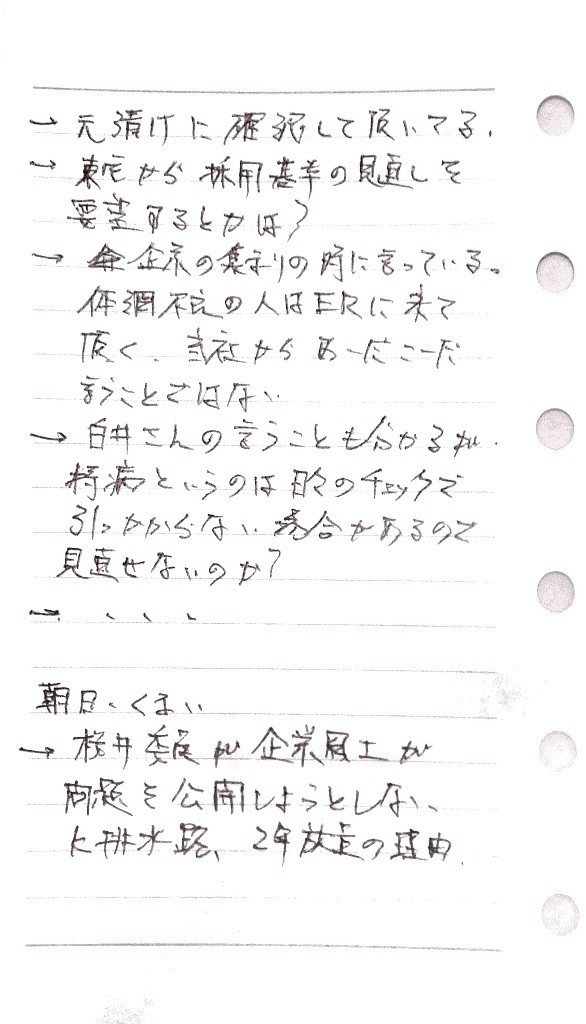 → 元請けに確認して頂いてる、
→ 東電から採用基準の見直しを
要望するとかは?
→ 企業の集まりの時に言っている。
体調不良の人はERに来て
頂く、当社からあーだこーだ
言うことではない
→ 白井さんの言うことも分かるが、
持病というのは日々のチェックで
引っかからない場合があるので
見直せないのか?
→ 、、、、
朝日・くまい
→ 桜井委員が企業風土が
問題を公開しようとしない、
K排水路、2年放置の理由